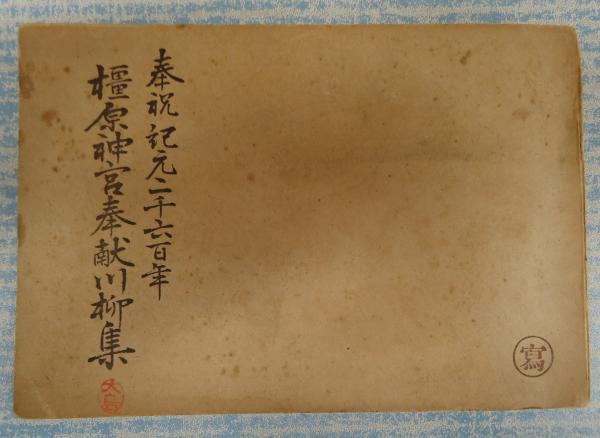 奉祝記元二千六百年
橿原神宮奉献川柳集
寫